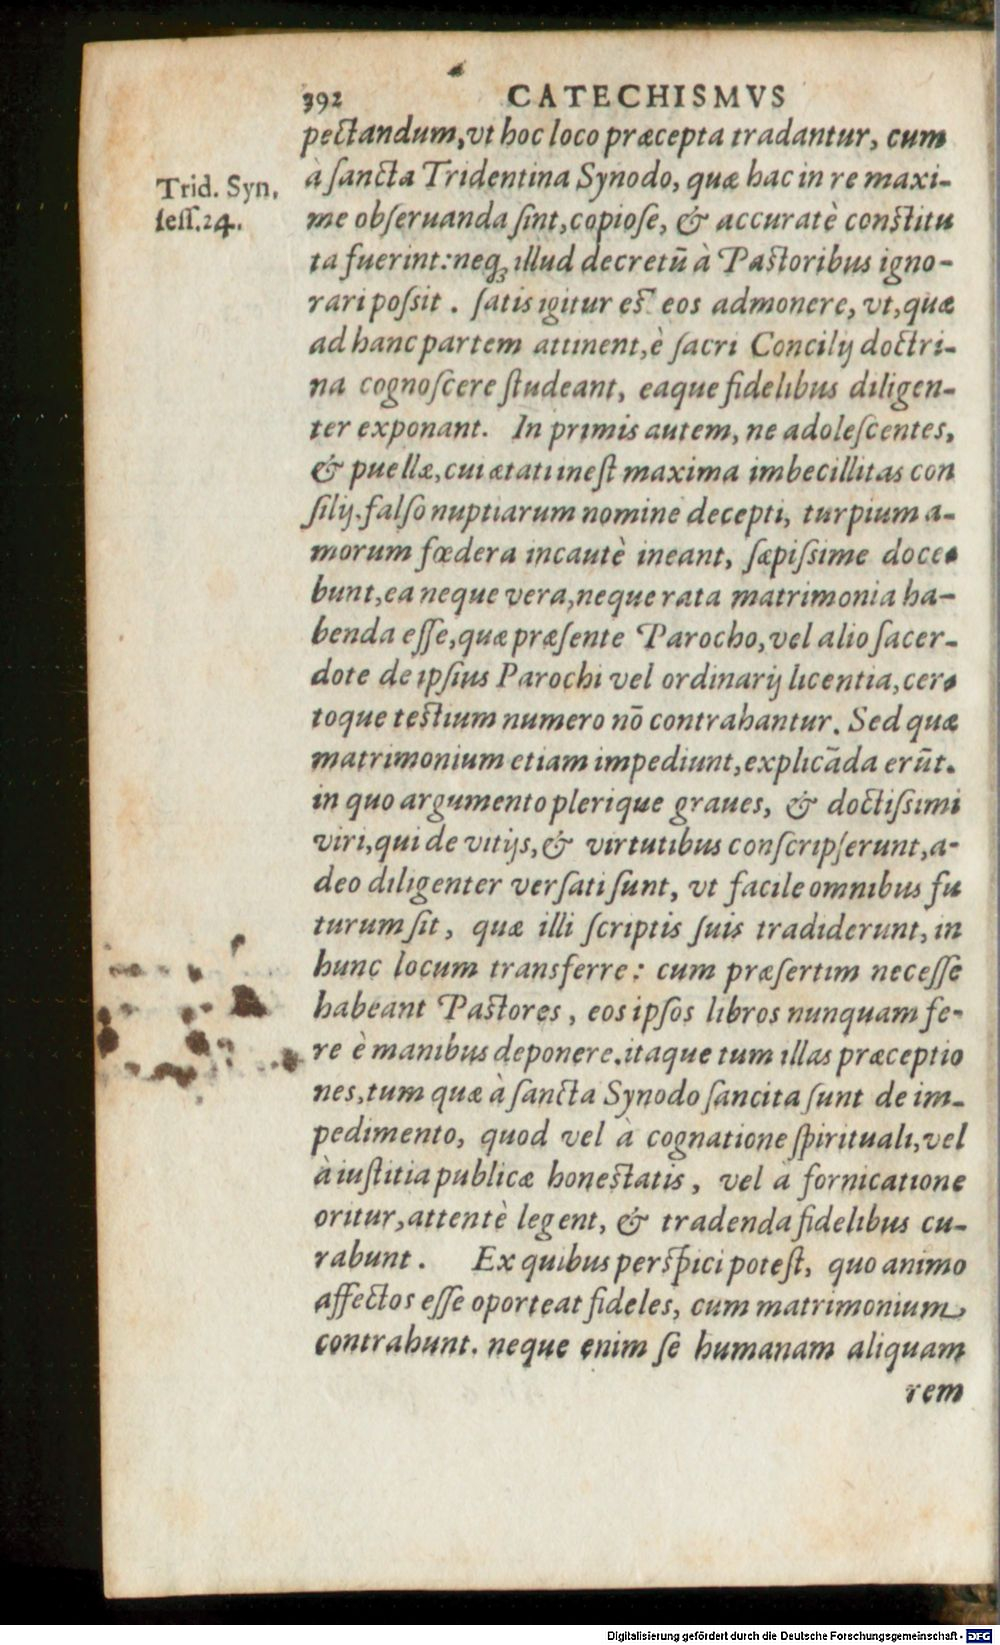 392 CATECHISMVS
pectandum,vt hoc loco præcepta tradantur, cum
Trid. Syn.
seſſ.24.
à ſancta Tridentina Synodo, quæ hac in re maxi-
me obſeruanda ſint,copioſe, & accuratè conſtitu
ta fuerint:neq; illud decretū à Paſtoribus igno-
rari poſsit . ſatis igitur eſt eos admonere, vt,quæ
ad hanc partem attinent,è ſacri Concilij doctri-
na cognoſcere ſtudeant, eaque fidelibus diligen-
ter exponant. In primis autem, ne adoleſcentes,
& puellæ,cui ætati ineſt maxima imbecillitas con
ſilij.falſo nuptiarum nomine decepti, turpium a-
morum fœdera incautè ineant, ſæpiſsime doce-
bunt,ea neque vera,neque rata matrimonia ha-
benda eſſe,quæ præſente Parocho,vel alio ſacer-
dote de ipſius Parochi vel ordinarij licentia,cer-
toque teſtium numero nō contrahantur. Sed quæ
matrimonium etiam impediunt,explicāda erūt.
in quo argumento plerique graues, & doctiſsimi
viri,qui de vitijs,& virtutibus conſcripſerunt,a-
deo diligenter verſati ſunt, vt facile omnibus fu
turum ſit, quæ illi ſcriptis ſuis tradiderunt, in
hunc locum transferre: cum præſertim neceſſe
habeant Paſtores, eos ipſos libros nunquam fe-
re è manibus deponere.itaque tum illas præceptio
nes,tum quæ à ſancta Synodo ſancita ſunt de im-
pedimento, quod vel à cognatione ſpirituali,vel
à iuſtitia publicæ honeſtatis, vel à fornicatione
oritur,attentè legent, & tradenda fidelibus cu-
rabunt. Ex quibus perſpici poteſt, quo animo
affectos eſſe oporteat fideles, cum matrimonium
contrahunt. neque enim ſe humanam aliquam
rem
Digitalisierung gefördert durch die Deutsche Forschungsgemeinschaft - DFG